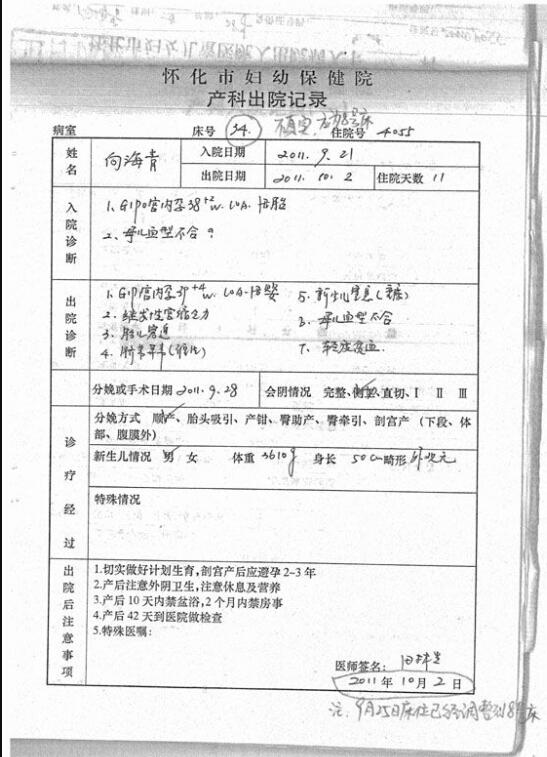 怀化市妇幼保健院
产科出院记录
病室 床号 34. 8号床 住院号 4055
姓名 向海青 入院日期 2011.9.21
出院日期 2011.10.2 住院天数 11
入院诊断
1、G1P0宫内孕38+2w. LOA.活胎
2、母儿血型不合?
出院诊断
1、G1P1宫内孕39+4w. LOA.活婴 5. 新生儿窒息
2. 继发性宫缩乏力 6、母儿血型不合
3. 胎儿窘迫 7、轻度贫血
4. 脐带异常
诊疗经过
分娩或手术日期 2011.9.28 会阴情况 完整、侧切、直切、I II III
分娩方式 顺产、胎头吸引、产钳、臀助产、臀牵引、剖宫产(下段、体
部、腹膜外)
新生儿情况 男 女 体重 3610g 身长 50cm 畸形 外观无
特殊情况
出院后注意事项
1.切实做好计划生育,剖宫产后应避孕2-3年
2.产后注意外阴卫生,注意休息及营养
3.产后10天内禁盆浴,2个月内禁房事
4.产后42天到医院做检查
5.特殊医嘱:
医师签名:
2011年10月2日
注:9月25日床位已经调整到8号床